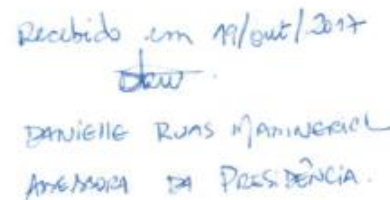 Recebido em 19/out/2017
DANIELLE RUAS MANINERICH
ASSESSORA DA PRESIDÊNCIA.